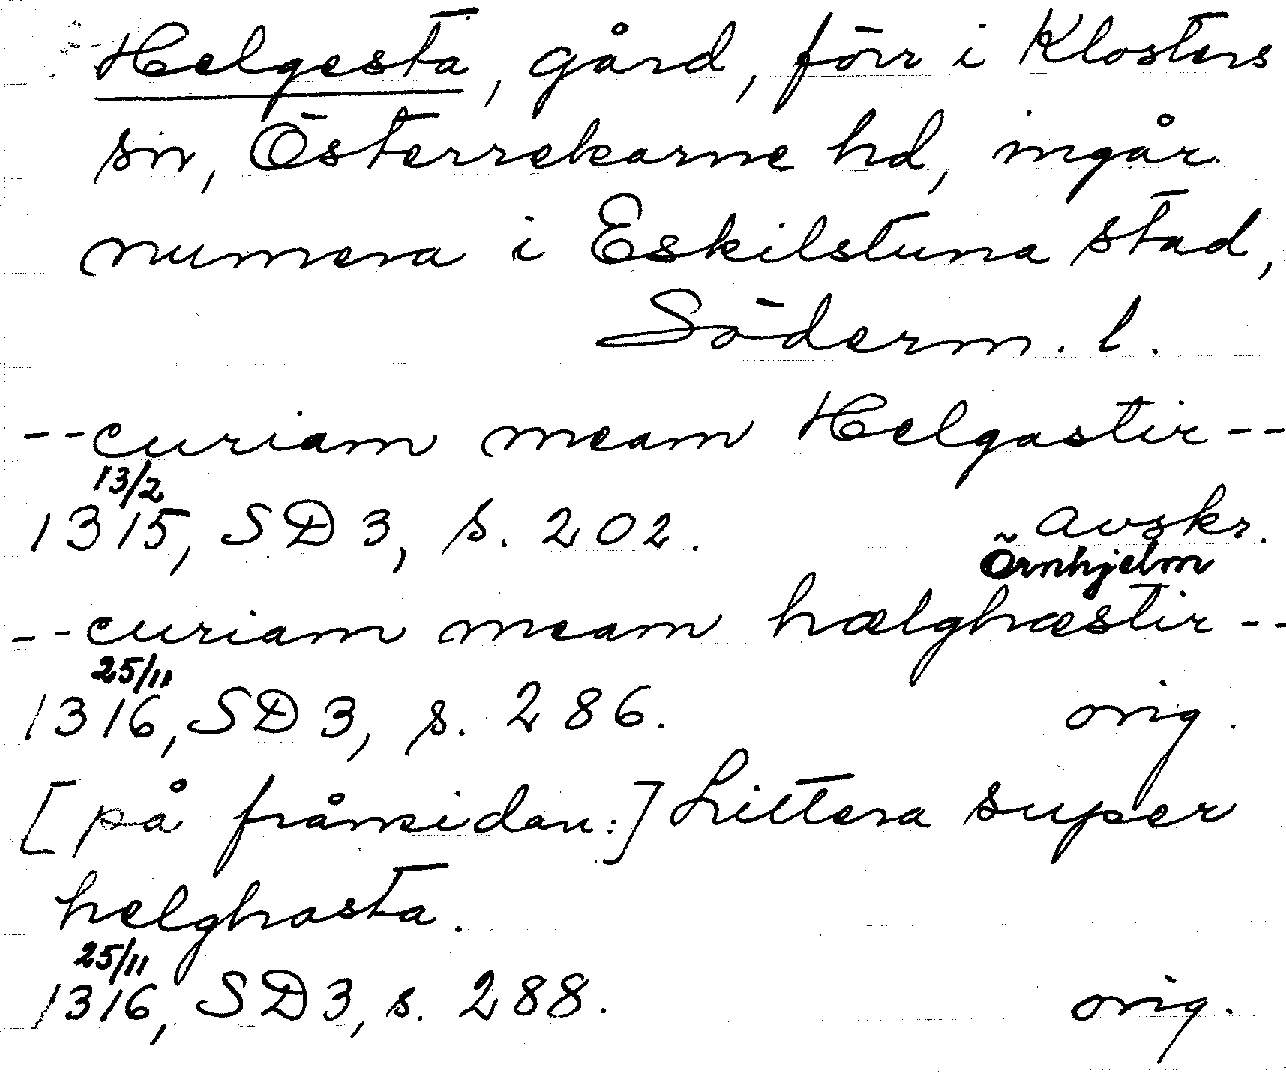 Helgesta, gård, förr i Klosters
sn, Österrekarne hd, ingår
numera i Eskilstuna stad,
Söderm. l.
--curiam meam Helgastir--
13/2
1315, SD 3, s. 202. avskr.
Örnhjelm
--curiam meam hælghæstir--
25/11
1316, SD 3, s. 286. orig.
[på frånsidan:] Littera super
helghasta.
25/11
1316, SD 3, s. 288. orig.